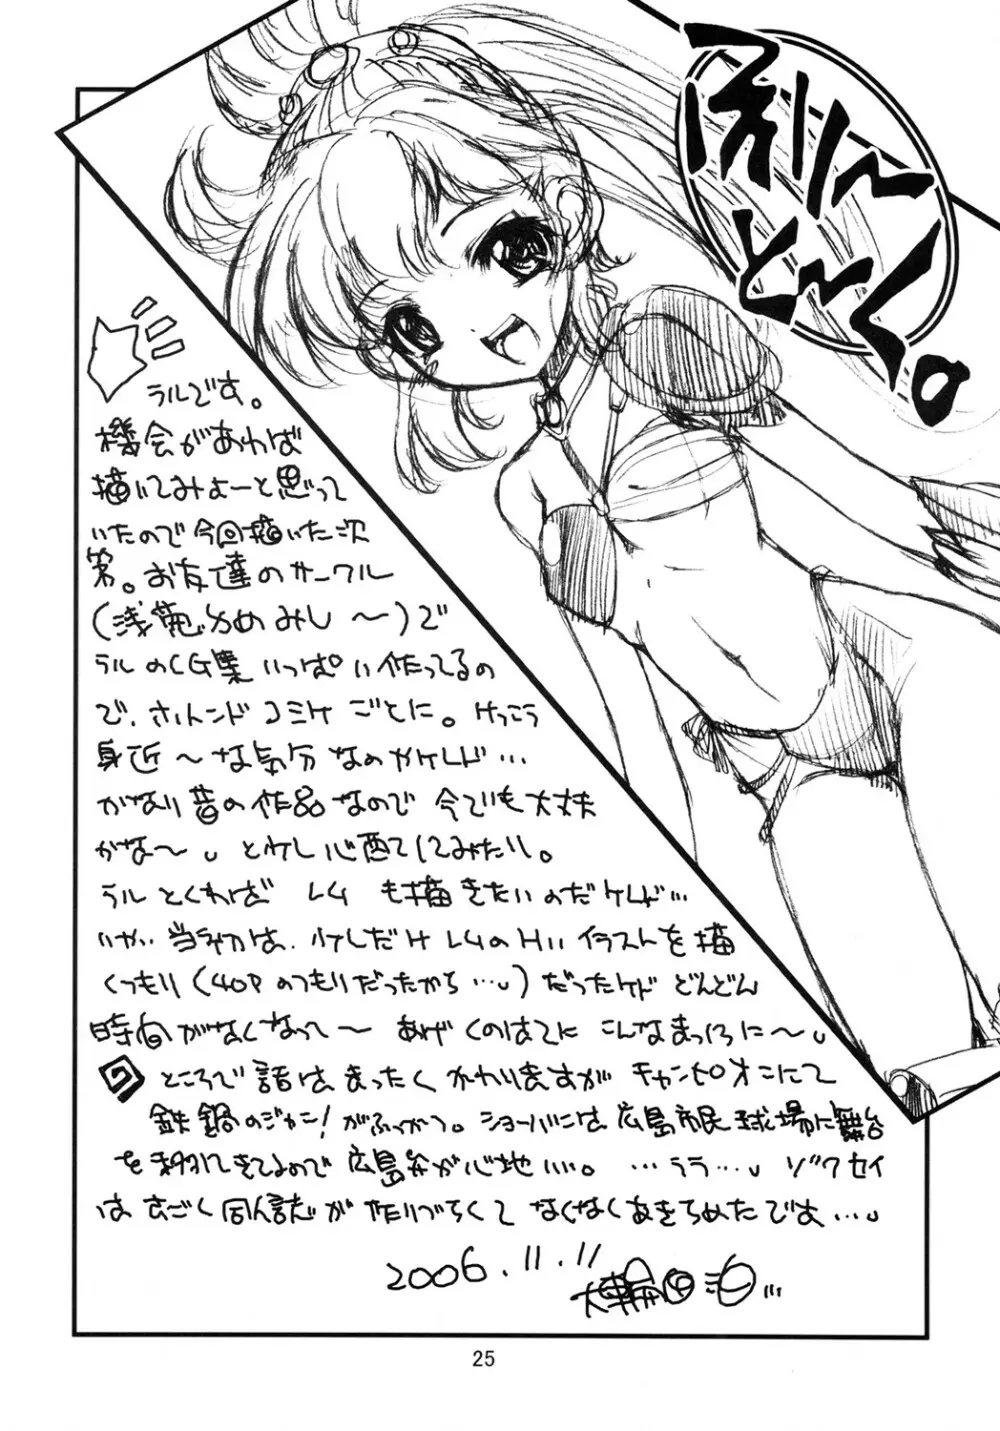 ふり〜
と〜く。
ラルです。
機会があれば
描いてみよーと思って
いたので今回描いた次
第。お友達のサークル
(浅草かめみし〜)で
ラルのCG集いっぱい作ってるの
で、ホントンドコミケごとに。けっこう
身近〜な気分なのやケレド…
かなり昔の作品なので今でも大丈夫
かな〜。と少し心配してみたり。
ラルとくれば L4も描きたいのだケレド…
いや、当初は、少しだけL4のHいイラストを描
くつもり(40Pのつもりだったから…)だったケドどんどん
時間がなくなって〜あげくのはてにこんなまっしろに〜
ところで話はまったくかわりますがチャンピオンにて
鉄鍋のジャン!がふっかつ。ショーバンは広島市民球場に舞台
を移してきてるので広島弁が心地いい。…うう…ゾクセイ
はすごく同人誌が作りづらくてなくなくあきらめたです…
2006.11.11
25